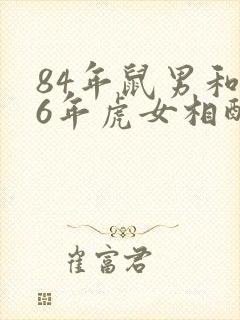 84年鼠男和
6年虎女相
崔富君